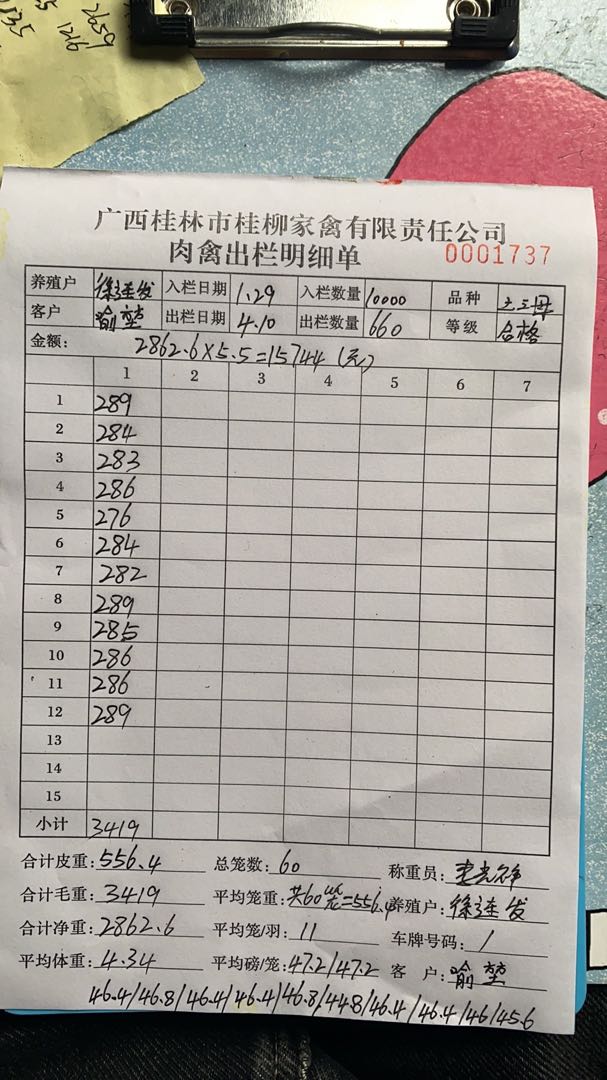 2659
1216
广西桂林市桂柳家禽有限责任公司
肉禽出栏明细单 0001737
养殖户 徐连发 入栏日期 1.29 入栏数量 10000 品种 土三母
客户 喻堃 出栏日期 4.10 出栏数量 660 等级 合格
金额: 2862.6×5.5=15744(元)
1 2 3 4 5 6 7
1 289
2 284
3 283
4 286
5 276
6 284
7 282
8 289
9 285
10 286
11 286
12 289
13
14
15
小计 3419
合计皮重: 556.4 总笼数: 60 称重员:
合计毛重: 3419 平均笼重: 共60笼=556.4 养殖户: 徐连发
合计净重: 2862.6 平均笼/羽: 11 车牌号码: /
平均体重: 4.34 平均磅/笼: 47.2/47.2 客户: 喻堃
46.4/46.8/46.4/46.4/46.8/44.8/46.4/46.4/46/45.6